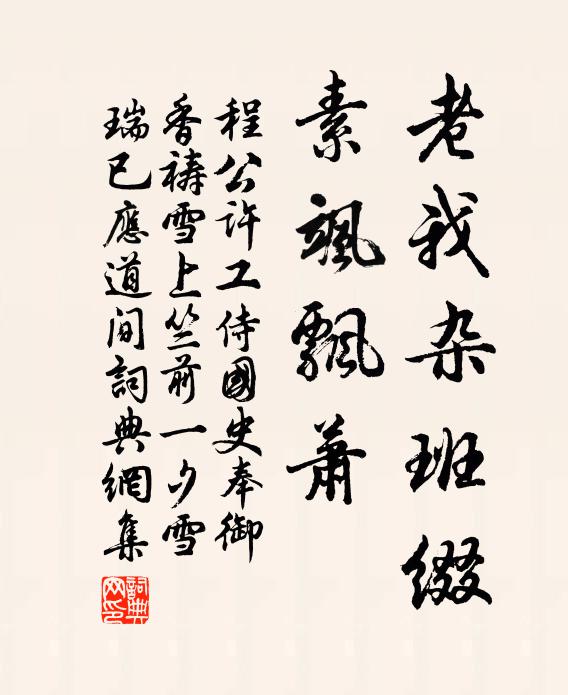 老我杂班缀
素飒飘萧
程公许工侍國史奉御
香祷雪上竺前一夕雪
瑞已應道间詞典網集
詞典网印